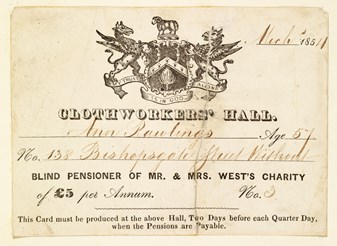 Mich^s 1854
MY TRUST
IS IN GOD
ALONE
CLOTHWORKERS' HALL.
Ann Rawlings Age 57
No. 138 Bishopsgate Street Without
BLIND PENSIONER OF MR. & MRS. WEST'S CHARITY
of £5 per Annum. No. 3
This Card must be produced at the above Hall, Two Days before each Quarter Day,
when the Pensions are Payable.